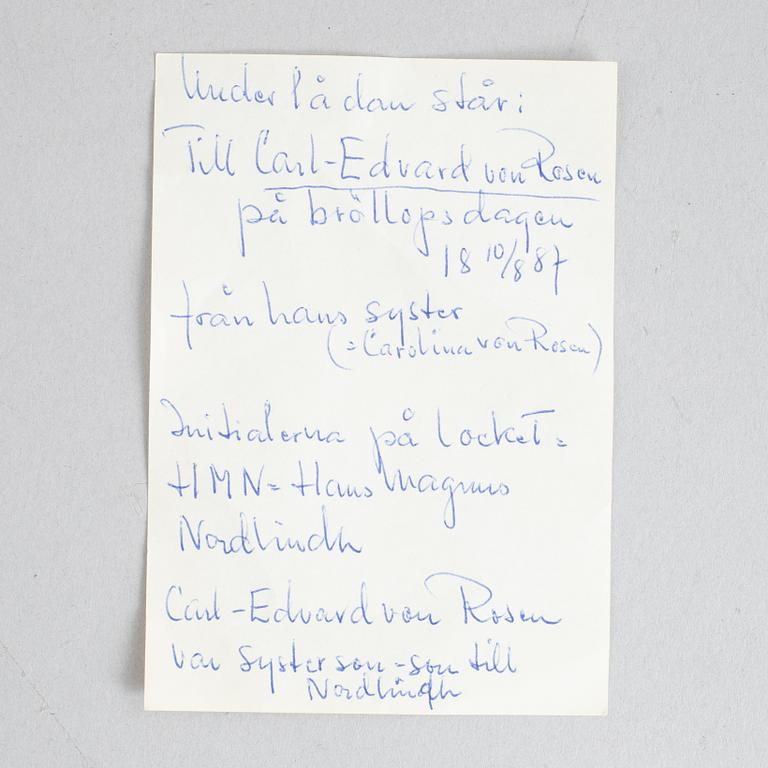 Under lådan står:
Till Carl-Edvard von Rosen
på bröllopsdagen
18 10/8 87
från hans syster
(=Carolina von Rosen)
Initialerna på locket=
HMN=Hans Magnus
Nordlindh
Carl-Edvard von Rosen
var systerson-son till
Nordlindh